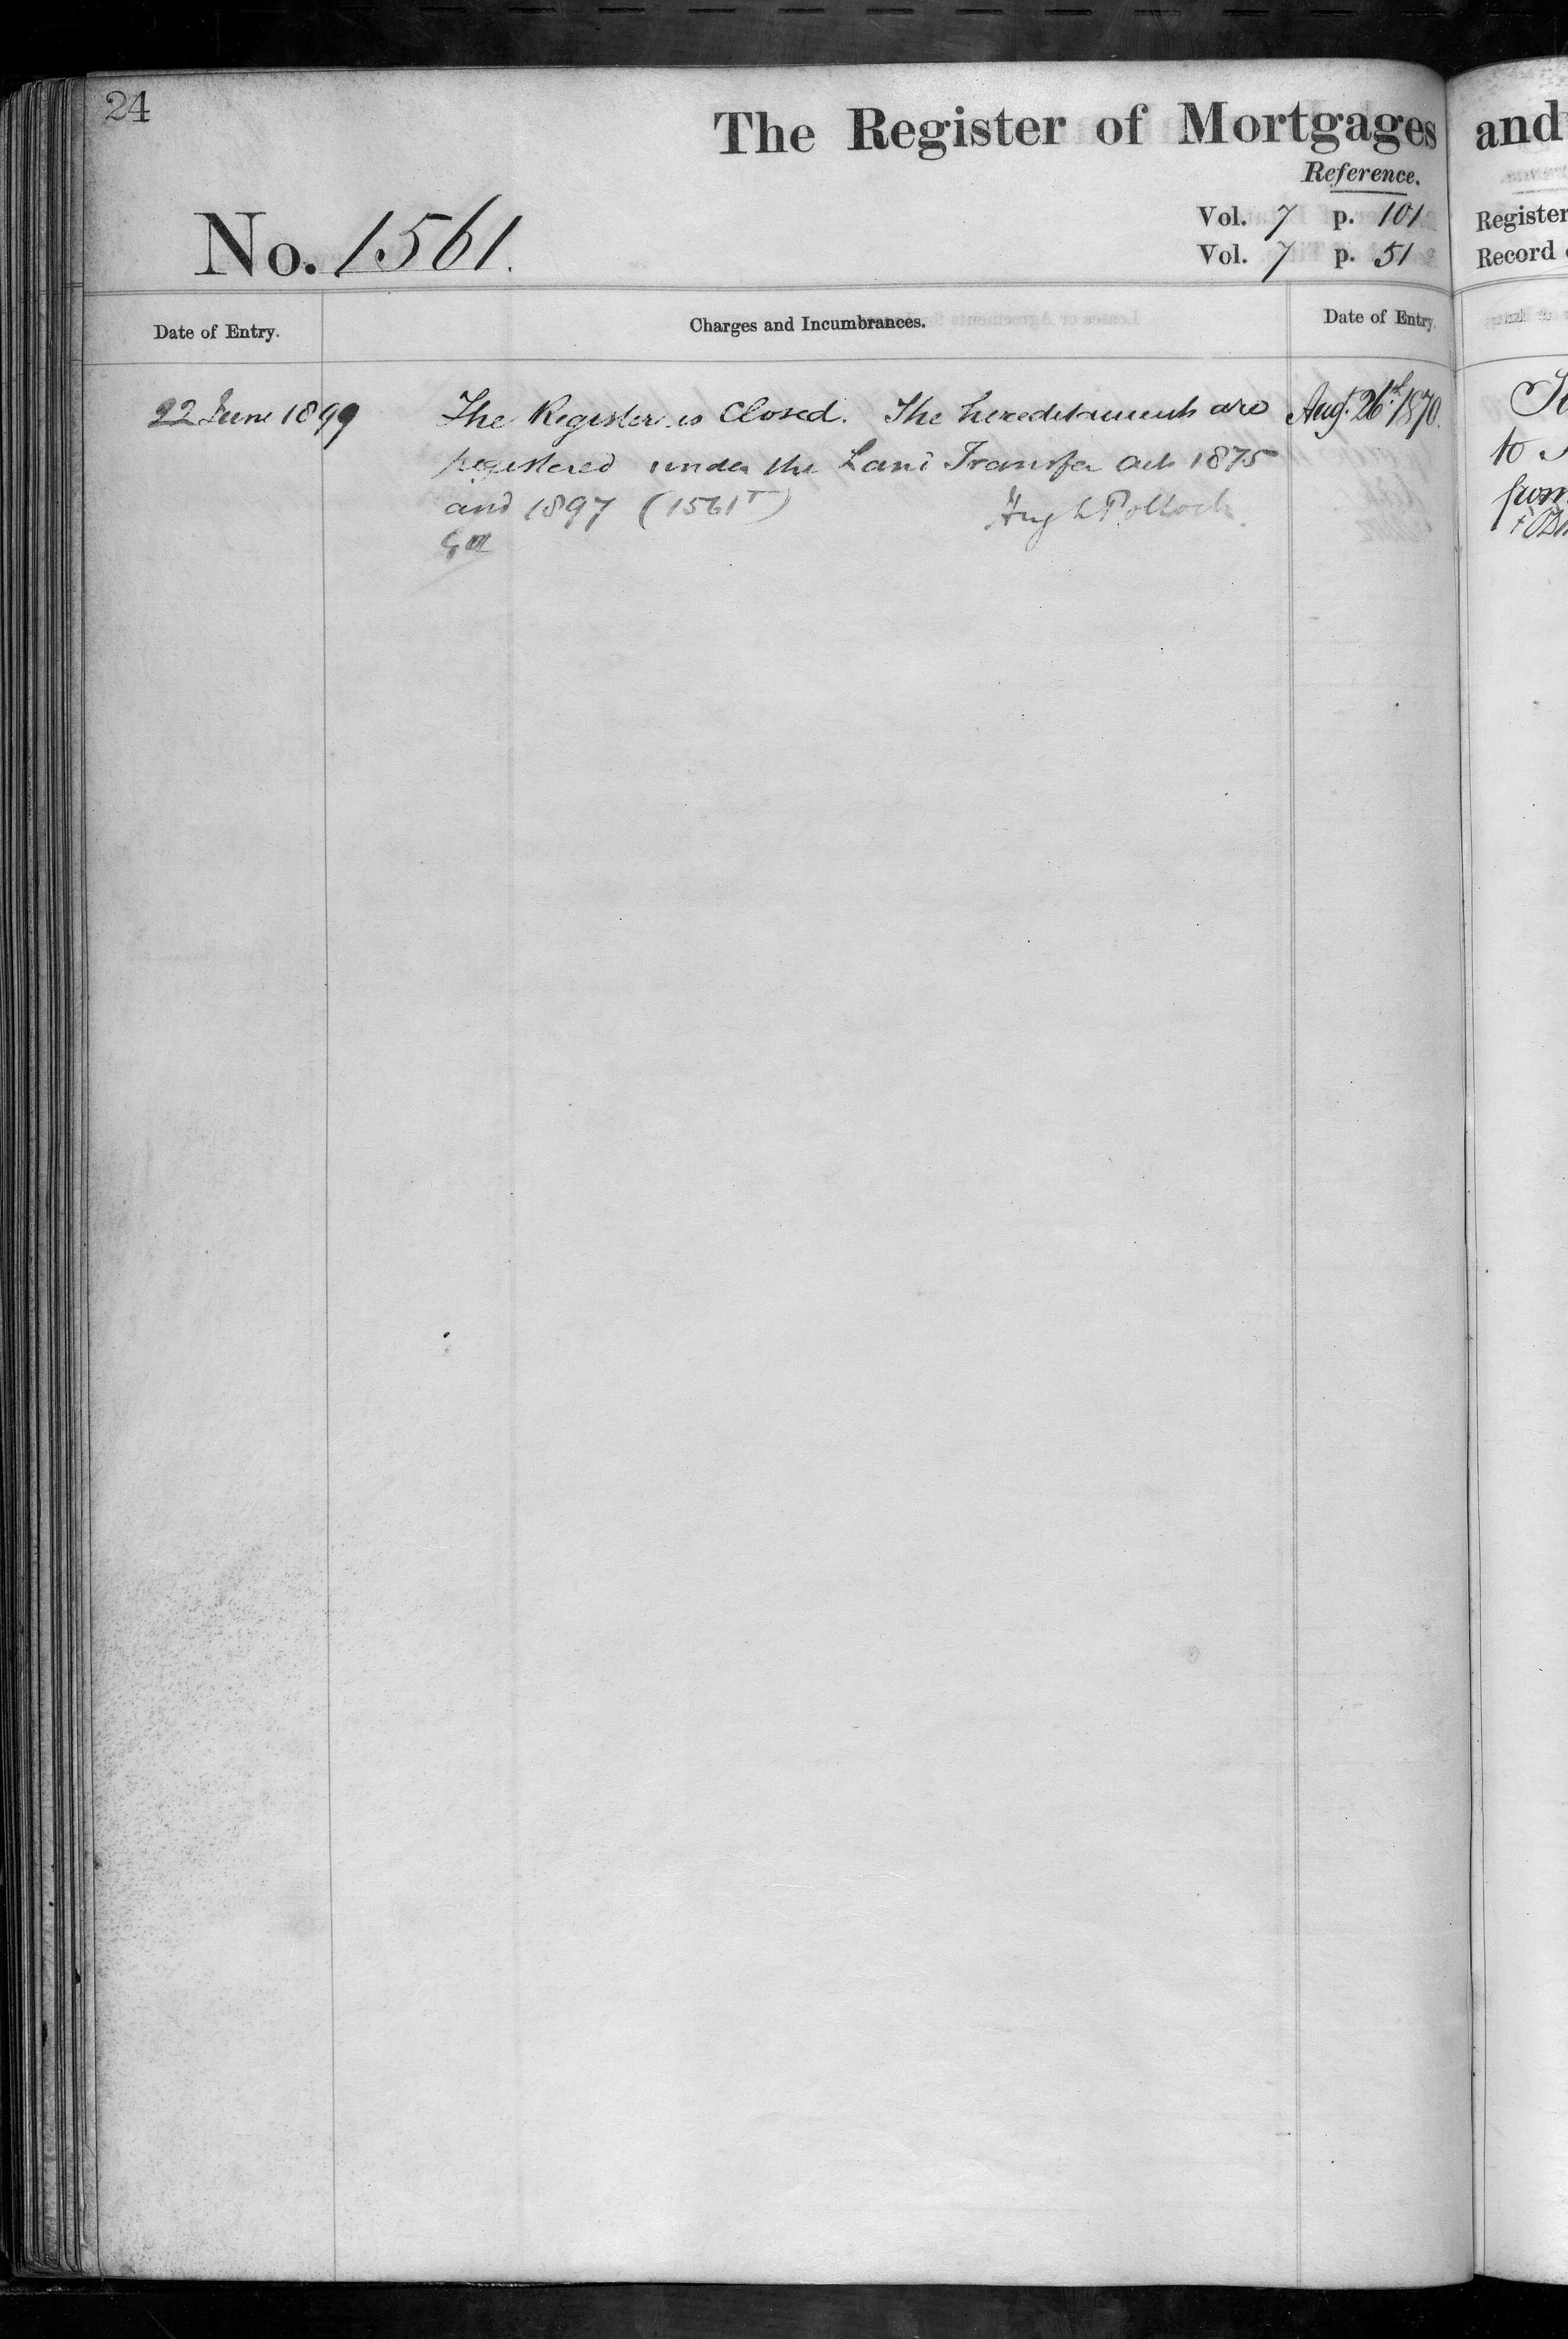 24
The Register of Mortgages and
Reference.
No. 1561.
Vol. 7 p. 101 Register
Vol. 7 p. 51 Record
Date of Entry. Charges and Incumbrances. Date of Entry.
22 June 1899 The Register is Closed. The hereditaments are Aug. 26th 1870.
registered under the Land Transfer Acts 1875 to
and 1897 (1561T) Hugh Pollock. from